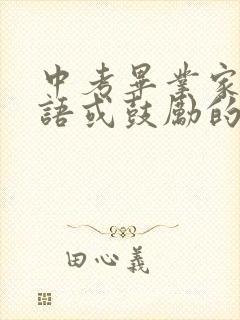 中考畢業家
語或鼓勵的
田心義